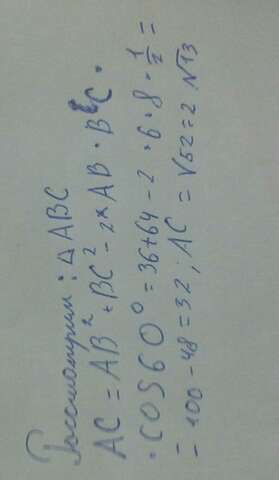 Рассмотрим: △ABC
AC = AB² + BC² - 2 * AB · BC ·
· cos 60° = 36+64 - 2 · 6 · 8 · 1/2 =
= 100 - 48 = 32; AC = √52 = 2√13